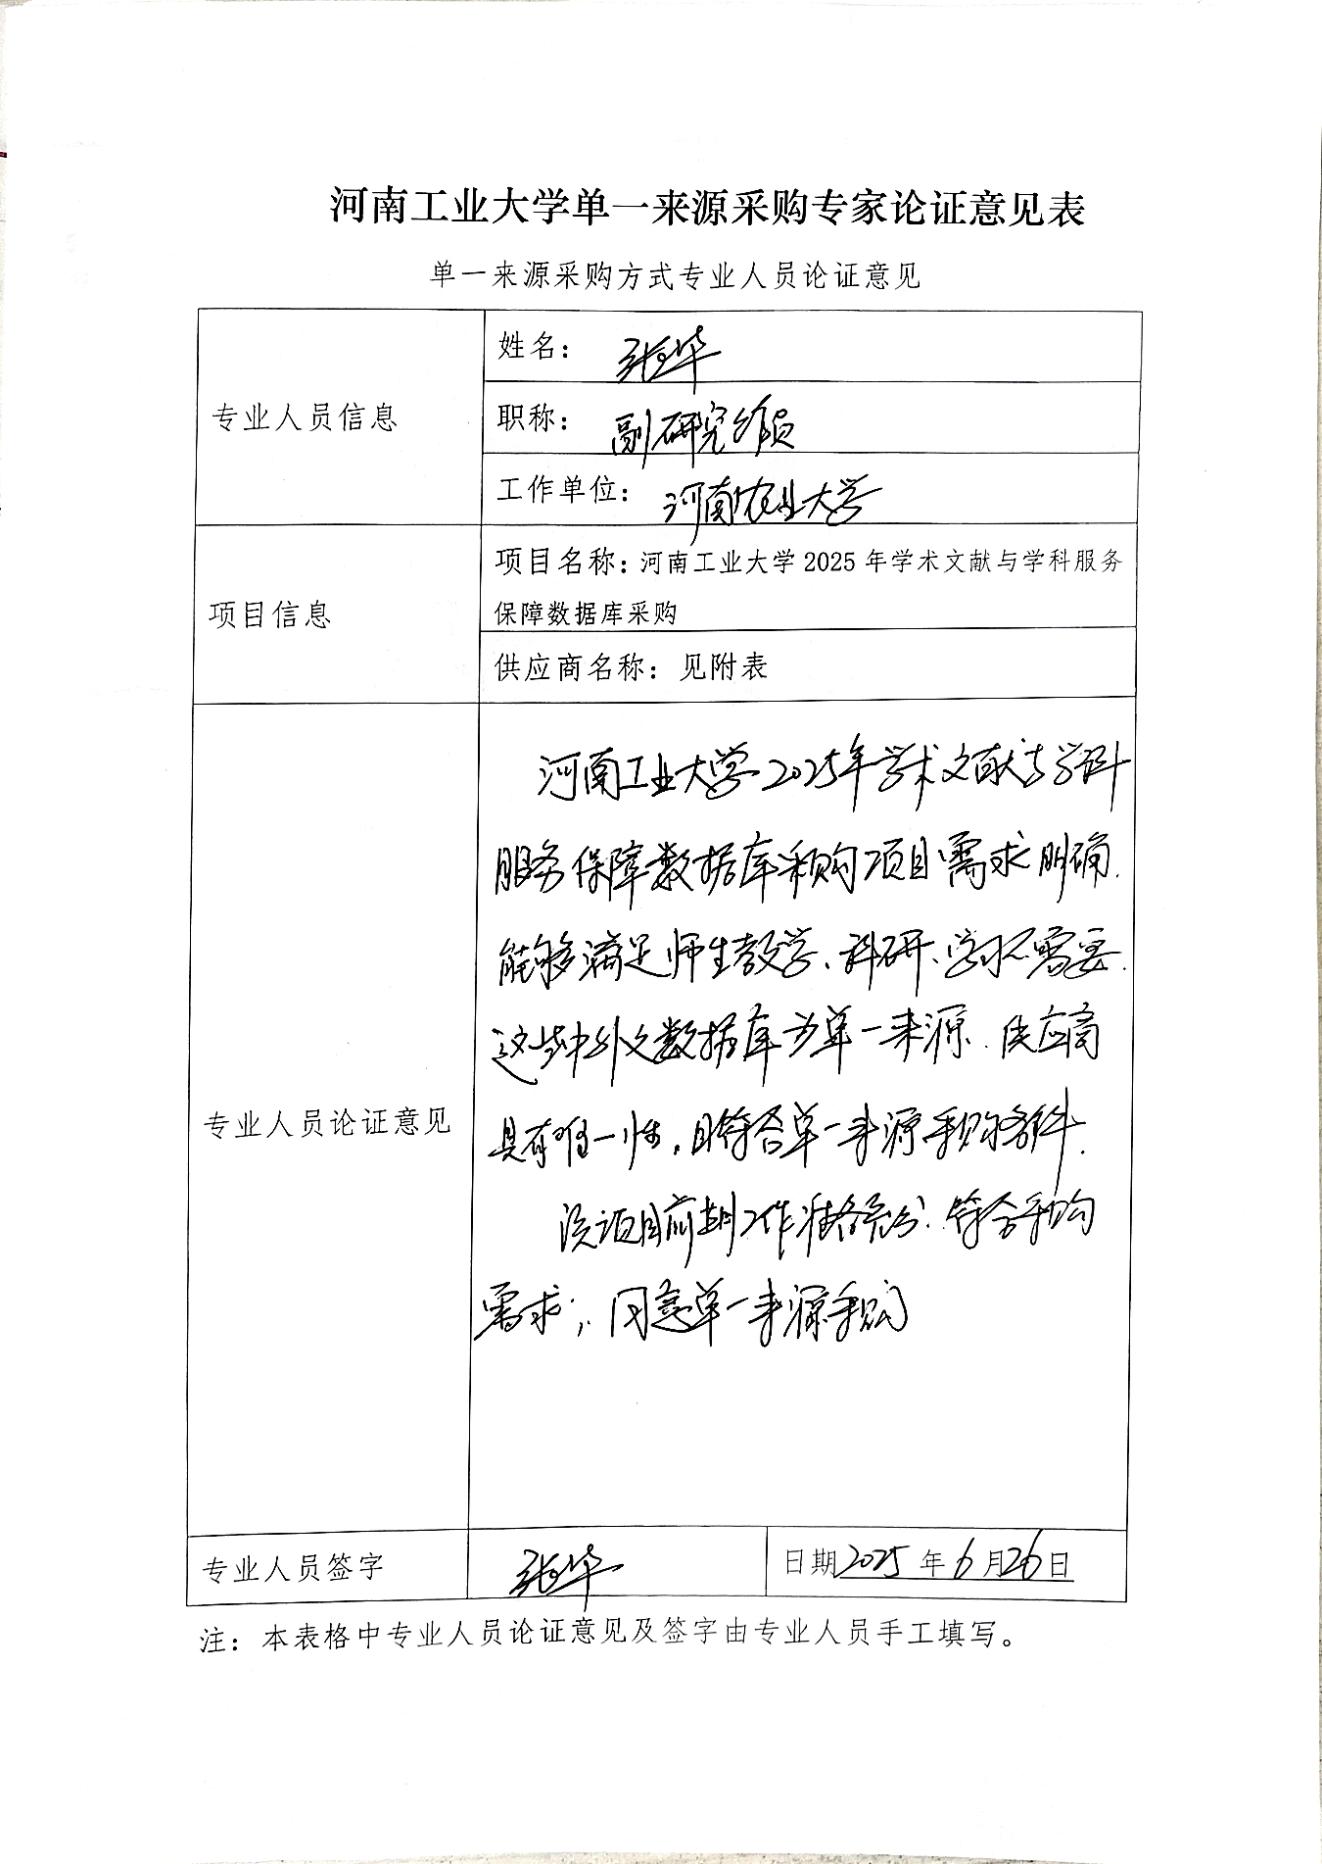 河南工业大学单一来源采购专家论证意见表
单一来源采购方式专业人员论证意见
专业人员信息
姓名：
职称： 副研究馆员
工作单位： 河南农业大学
项目信息
项目名称：河南工业大学2025年学术文献与学科服务
保障数据库采购
供应商名称：见附表
专业人员论证意见
河南工业大学2025年学术文献与学科
服务保障数据库采购项目需求明确.
能够满足师生教学、科研、学术需要.
这些中外文数据库为单一来源.供应商
具有唯一性,且符合单一来源采购条件.
该项目前期工作准备充分.符合采购
需求;同意单一来源采购
专业人员签字
日期2025年6月26日
注：本表格中专业人员论证意见及签字由专业人员手工填写。